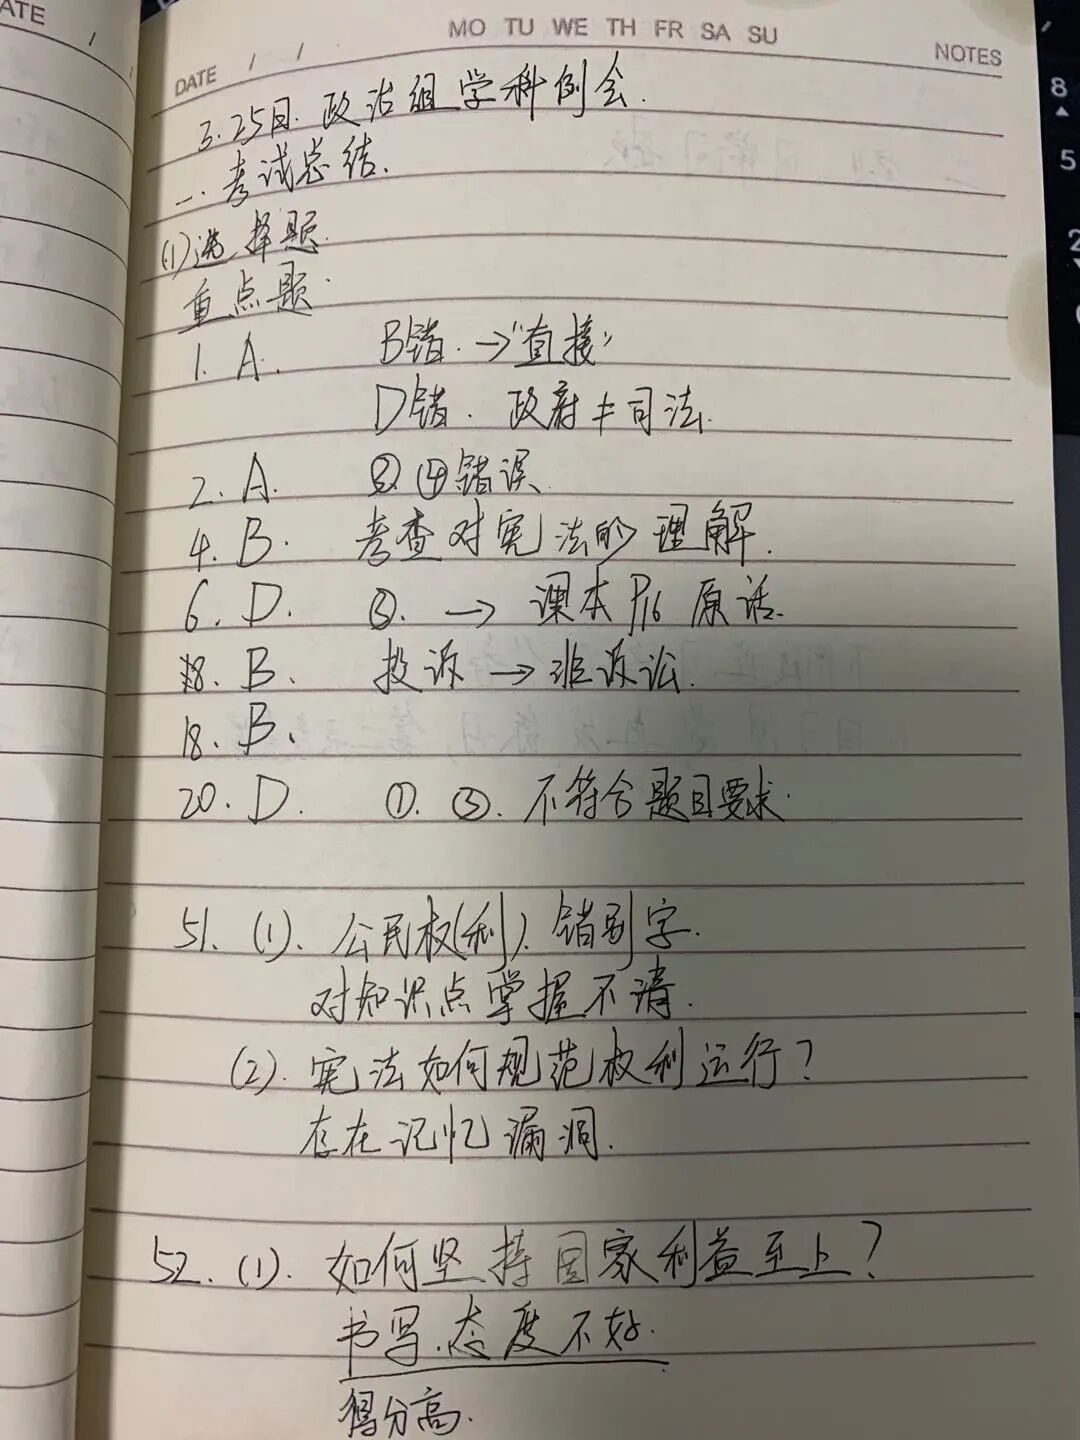 ATE /
MO TU WE TH FR SA SU
DATE / /
NOTES
3.25日.政治组学科例会.
一.考试总结.
(1)选择题.
重点题.
1. A. B错.→"直接"
D错.政府≠司法.
2. A. ②④错误.
4. B. 考查对宪法的理解.
6. D. ③. → 课本P16 原话.
8. B. 投诉→非诉讼.
18. B.
20. D. ①.③.不符合题目要求.
51. (1). 公民权(利).错别字.
对知识点掌握不清.
(2). 宪法如何规范权利运行?
存在记忆漏洞.
52. (1). 如何坚持国家利益至上?
书写.态度不好.
得分高.
8
5
2